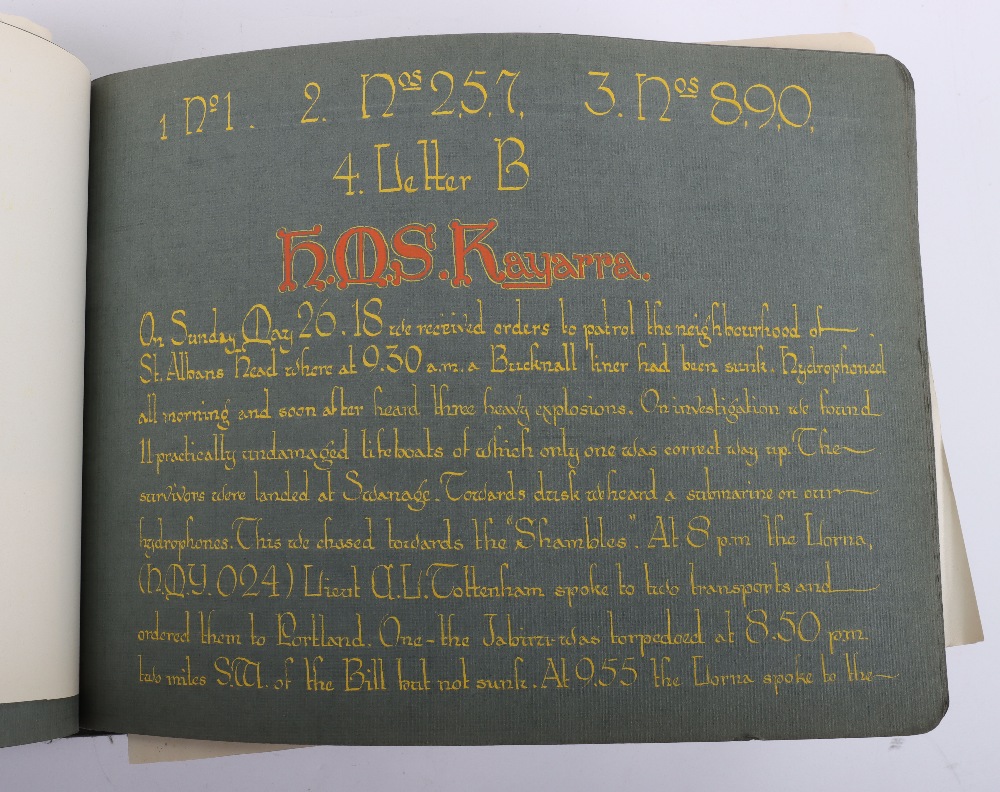 1 No1. 2. Nos 2,5,7, 3. Nos 8,9,0,
4. Letter B
H.M.S. Kayarra.
On Sunday May 26. 18 we received orders to patrol the neighbourhood of
St. Albans Head where at 9.30 a.m. a Bucknall liner had been sunk. Hydrophoned
all morning and soon after heard three heavy explosions. On investigation we found
11 practically undamaged lifeboats of which only one was correct way up. The
survivors were landed at Swanage. Towards dusk we heard a submarine on our
hydrophones. This we chased towards the "Shambles". At 8 p.m the Lorna,
(H.M.Y. 024) Lieut C.L. Tottenham spoke to two transports and
ordered them to Portland. One - the Jabirru was torpedoed at 8.50 p.m.
two miles S.W. of the Bill but not sunk. At 9.55 the Lorna spoke to the